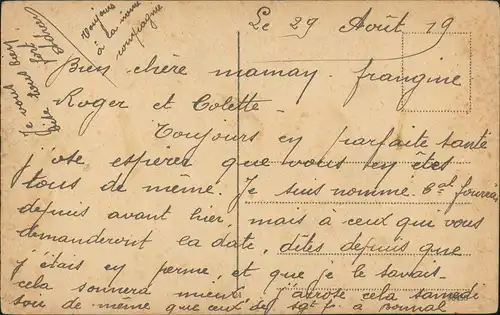 Le 29 Août 19
Bien chère maman, frangine
Roger et Colette
Toujours en parfaite santé
j'ose espérer que vous en êtes
tous de même. Je suis nommé c'al fourrier
depuis avant hier, mais à ceux qui vous
demanderont la date, dites depuis que
j'étais en perme, et que je le savais
cela sonnera mieux, j'arrose cela samedi
soir de même que ceux des sgt f. à
Toujours
à la même
compagnie
Je vous
bise tous bien
fort